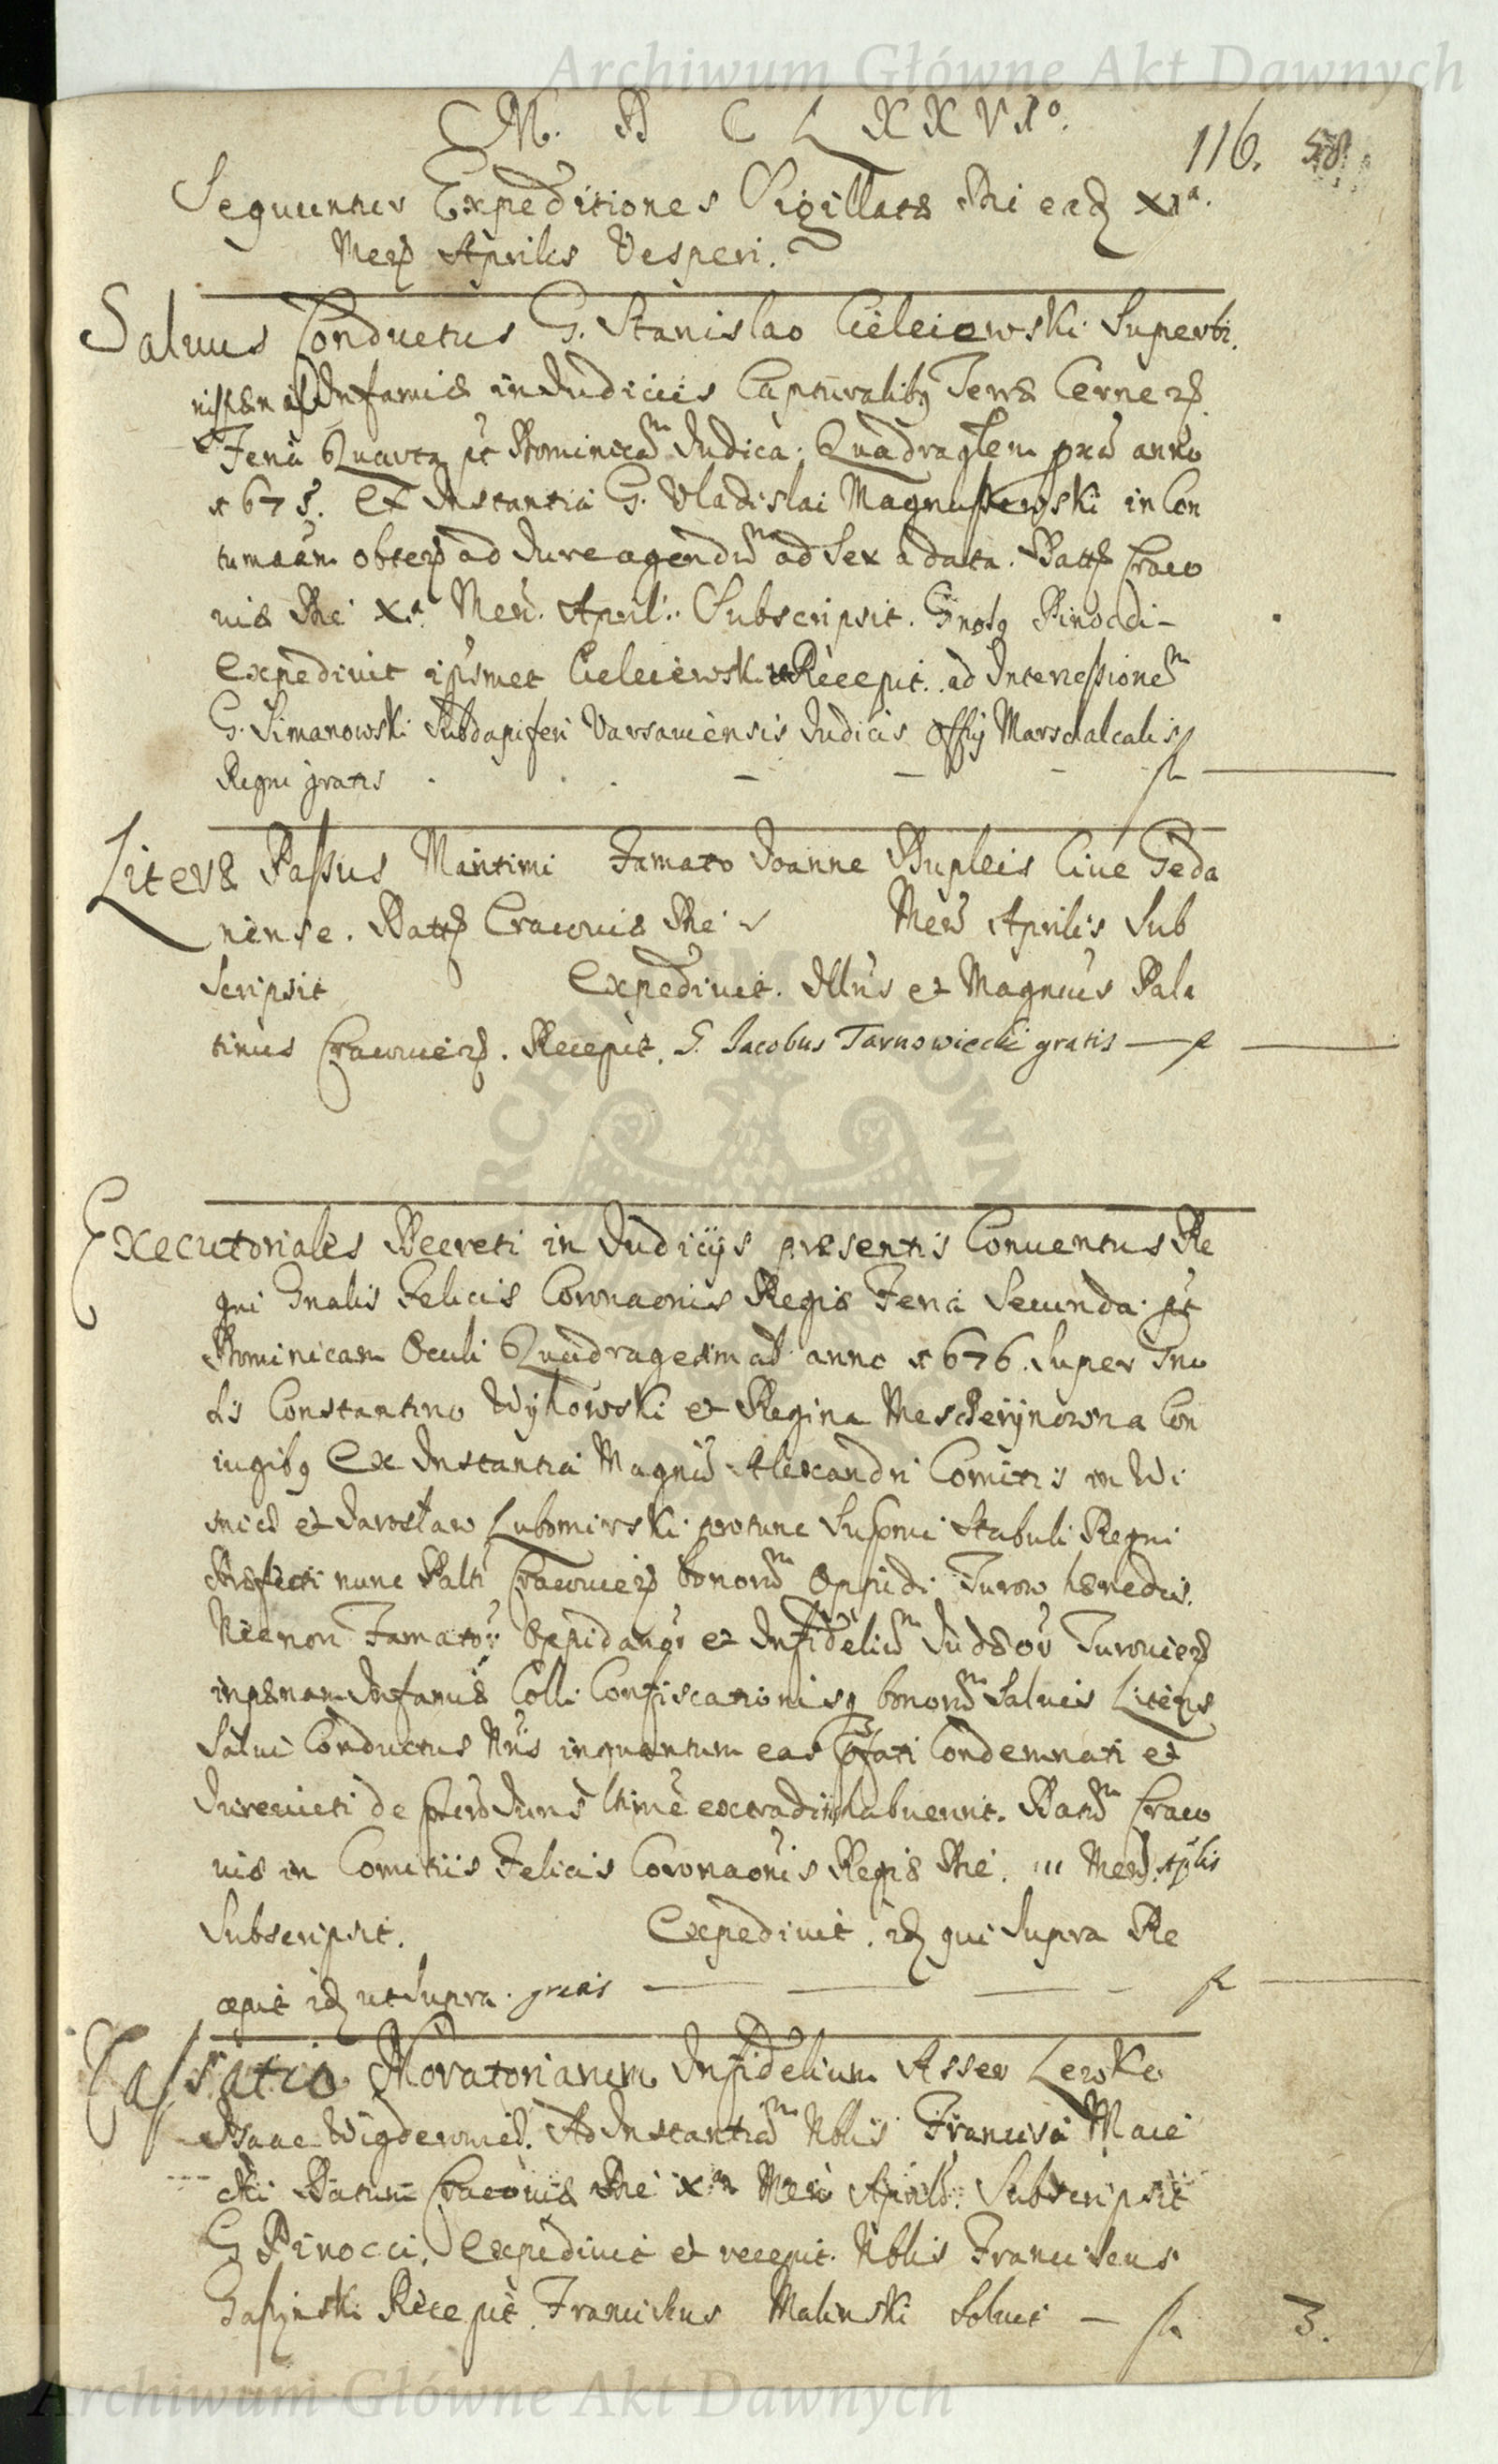 Archiwum Główne Akt Dawnych
M. D C L XXVIº.
116. 58.
Sequuntur Expeditiones Sigillatæ Die ead XIª.
Mens Aprilis Vesperi.
Saluus Conductus G. Stanislao Cieleiewski Super
Infamiæ in Judiciis Capturalib Terræ Cernen
Feria Quarta pt Dominicam Judica Quadraglem anno
1675. Ex Instantia G. Vladislai Magnuszewski in Con
tumaam obten ad Jure agendum ad Sex a data. Datt Craco
uiæ Die Xª. Mens. April. Subscripsit. Gnosq Pinocci
Expediuit ipsmet Cieleiewski Recepit ad Intercessionem
G. Simanowski Subdapiferi Varsauiensis Judicis Offij Marschalcalis
Regni gratis - - - fl
Literæ Passus Maritimi Famato Joanne Dupleis Ciue Geda
nense. Datt Cracouiæ Die Mens Aprilis Sub
Scripsit Expediuit. Illris et Magncus Pala
tinus Cracouien. Recepit. G. Jacobus Tarnowiecki gratis — fl
Executoriales Decreti in Judicijs præsentis Conuentus Re
gni Gnalis Felicis Coronaonis Regiæ Feria Secunda pt
Dominicam Oculi Quadragesimal anno 1676. Super Gno
sis Constantino Wyhowski et Regina Mescherynowna Con
iugibq Ex Instantia Magnci Alexandri Comitis in Wi
snicz et Jaroslaw Lubomirski protunc Supremi Stabuli Regni
Præfecti nunc Palti Cracouien bonorum Oppidi Turow hæredis.
Necnon Famator Oppidanor et Infidelium Judæor Turouien
in pænam Infamiæ Colli Confiscationisq bonorum Saluis Literis
Salui Conductus Nris inquantum eas Condemnati et
Jureuicti de Juris ltime extradit habuerint. Datum Craco
uiæ in Comitiis Felicis Coronaonis Regiæ Die. III Mens. Aplis
Subscripsit. Expediuit. id qui Supra Re
cepit id ut Supra. gratis — — — fl
Cassatio Moratoriarum Infidelium Asser Lewko
Isaac Wigderowicz. Ad Instantiam Nblis Francisci Maie
Datum Cracouiæ Die Xª Mens Aprilis. Subscripsit
G Pinocci. Expediuit et recepit. Nblis Franciscus
Recepit. Franciscus Malinski Soluit — fl. 3.
Archiwum Główne Akt Dawnych